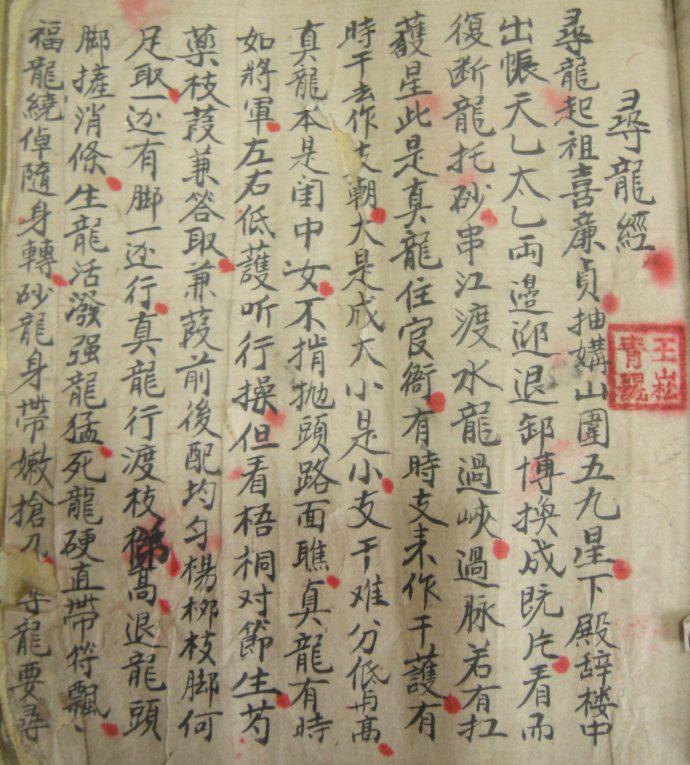 尋龍經
尋龍起祖喜廉貞抽媾山圍五九星下殿辞楼中
出帳天乙太乙両邊迎退卸博換成既片看而
復断龍托砂串江渡水龍過峽過脉若有扛
護星此是真龍住官衙有時支来作干護有
時干去作支朝大是成大小是小支干难分低与高
真龍本是闺中女不揹抛頭路面瞧真龍有時
如將軍左右低護听行操但看梧桐对節生芍
藥枝葭兼答取蒹葭前後配均匀楊柳枝脚何
足取一边有脚一边行真龍行渡枝梯高退龍頭
脚搓消條生龍活潑强龍猛死龍硬直帶符飄
福龍繞倬隨身轉砂龍身帶嫩搶刀尋龍要尋
王崧
青